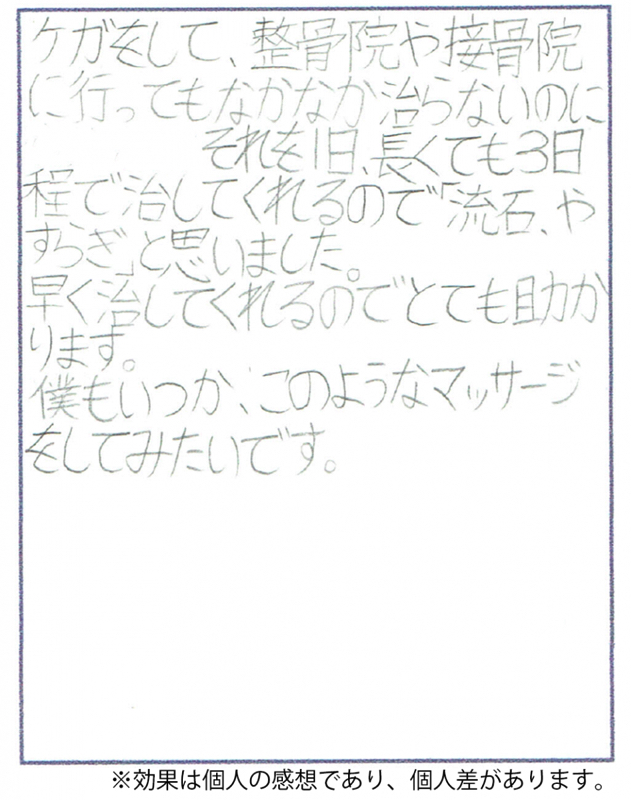 ケガをして、整骨院や接骨院
に行ってもなかなか治らないのに
それを1日、長くても3日
程で治してくれるので「流石、や
すらぎ」と思いました。
早く治してくれるのでとても助か
ります。
僕もいつか、このようなマッサージ
をしてみたいです。
※効果は個人の感想であり、個人差があります。